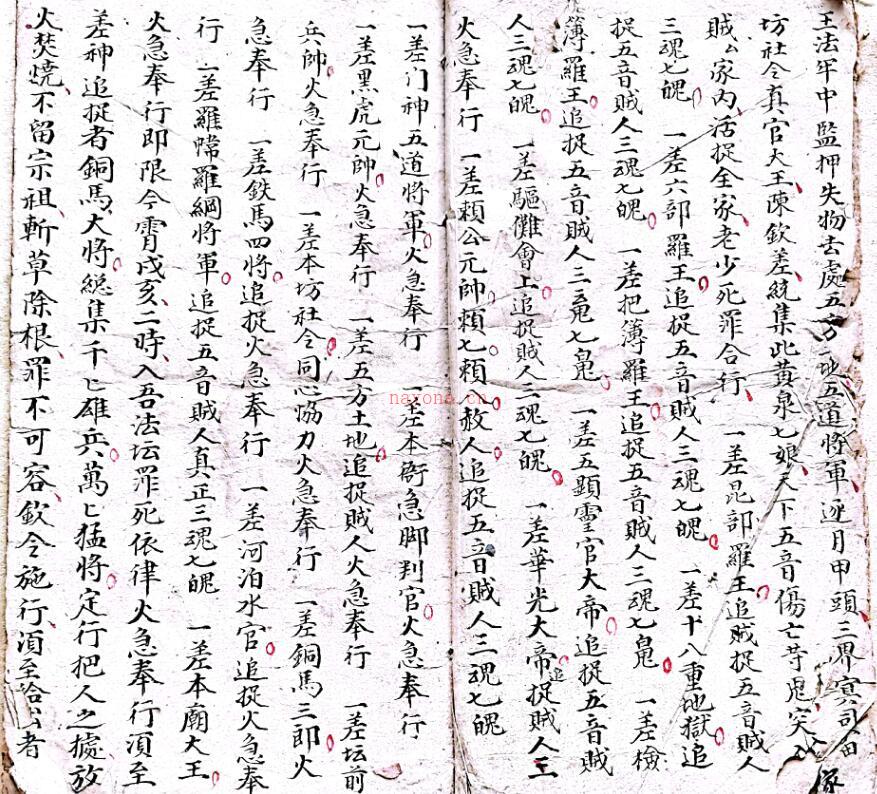 王法牢中監押失物去處五方地五道將軍逐月甲頭三界冥司
坊社令真官大王陳欽差統集此黃泉七娘天下五音傷亡芽鬼突
賊公家内活捉全家老少死罪合行 一差昆部羅王追賊捉五音賊人
三魂七魄 一差六部羅王追捉五音賊人三魂七魄 一差十八重地獄追
捉五音賊人三魂七魄 一差把簿羅王追捉五音賊人三魂七鬼 一差檢
簿羅王追捉五音賊人三鬼七鬼 一差五顕霊官大帝追捉五音賊
人三魂七魄 一差驅儺會上追捉賊人三魂七魄 一差華光大帝追捉賊人三
火急奉行 一差賴公元帥頼七頼赦人追捉五音賊人三魂七魄
一差门神五道将軍火急奉行 一差本衙急脚判官火急奉行
一差黑虎元帥火急奉行 一差五方土地追捉賊人火急奉行 一差坛前
兵帥火急奉行 一差本坊社令同心協力火急奉行 一差銅馬三郎火
急奉行 一差鉄馬四将追捉火急奉行 一差河泊水官追捉火急奉
行 一差羅幃羅綱將軍追捉五音賊人真正三魂七魄 一差本廟大王
火急奉行即限今霄戌亥二時入吾法坛罪死依律火急奉行湏至
差神追捉者銅馬大将總集千匕雄兵萬匕猛将定行把人之摅放
火焚燒不留宗祖斬草除根罪不可容欽令施行湏至給出者
nayona.cn